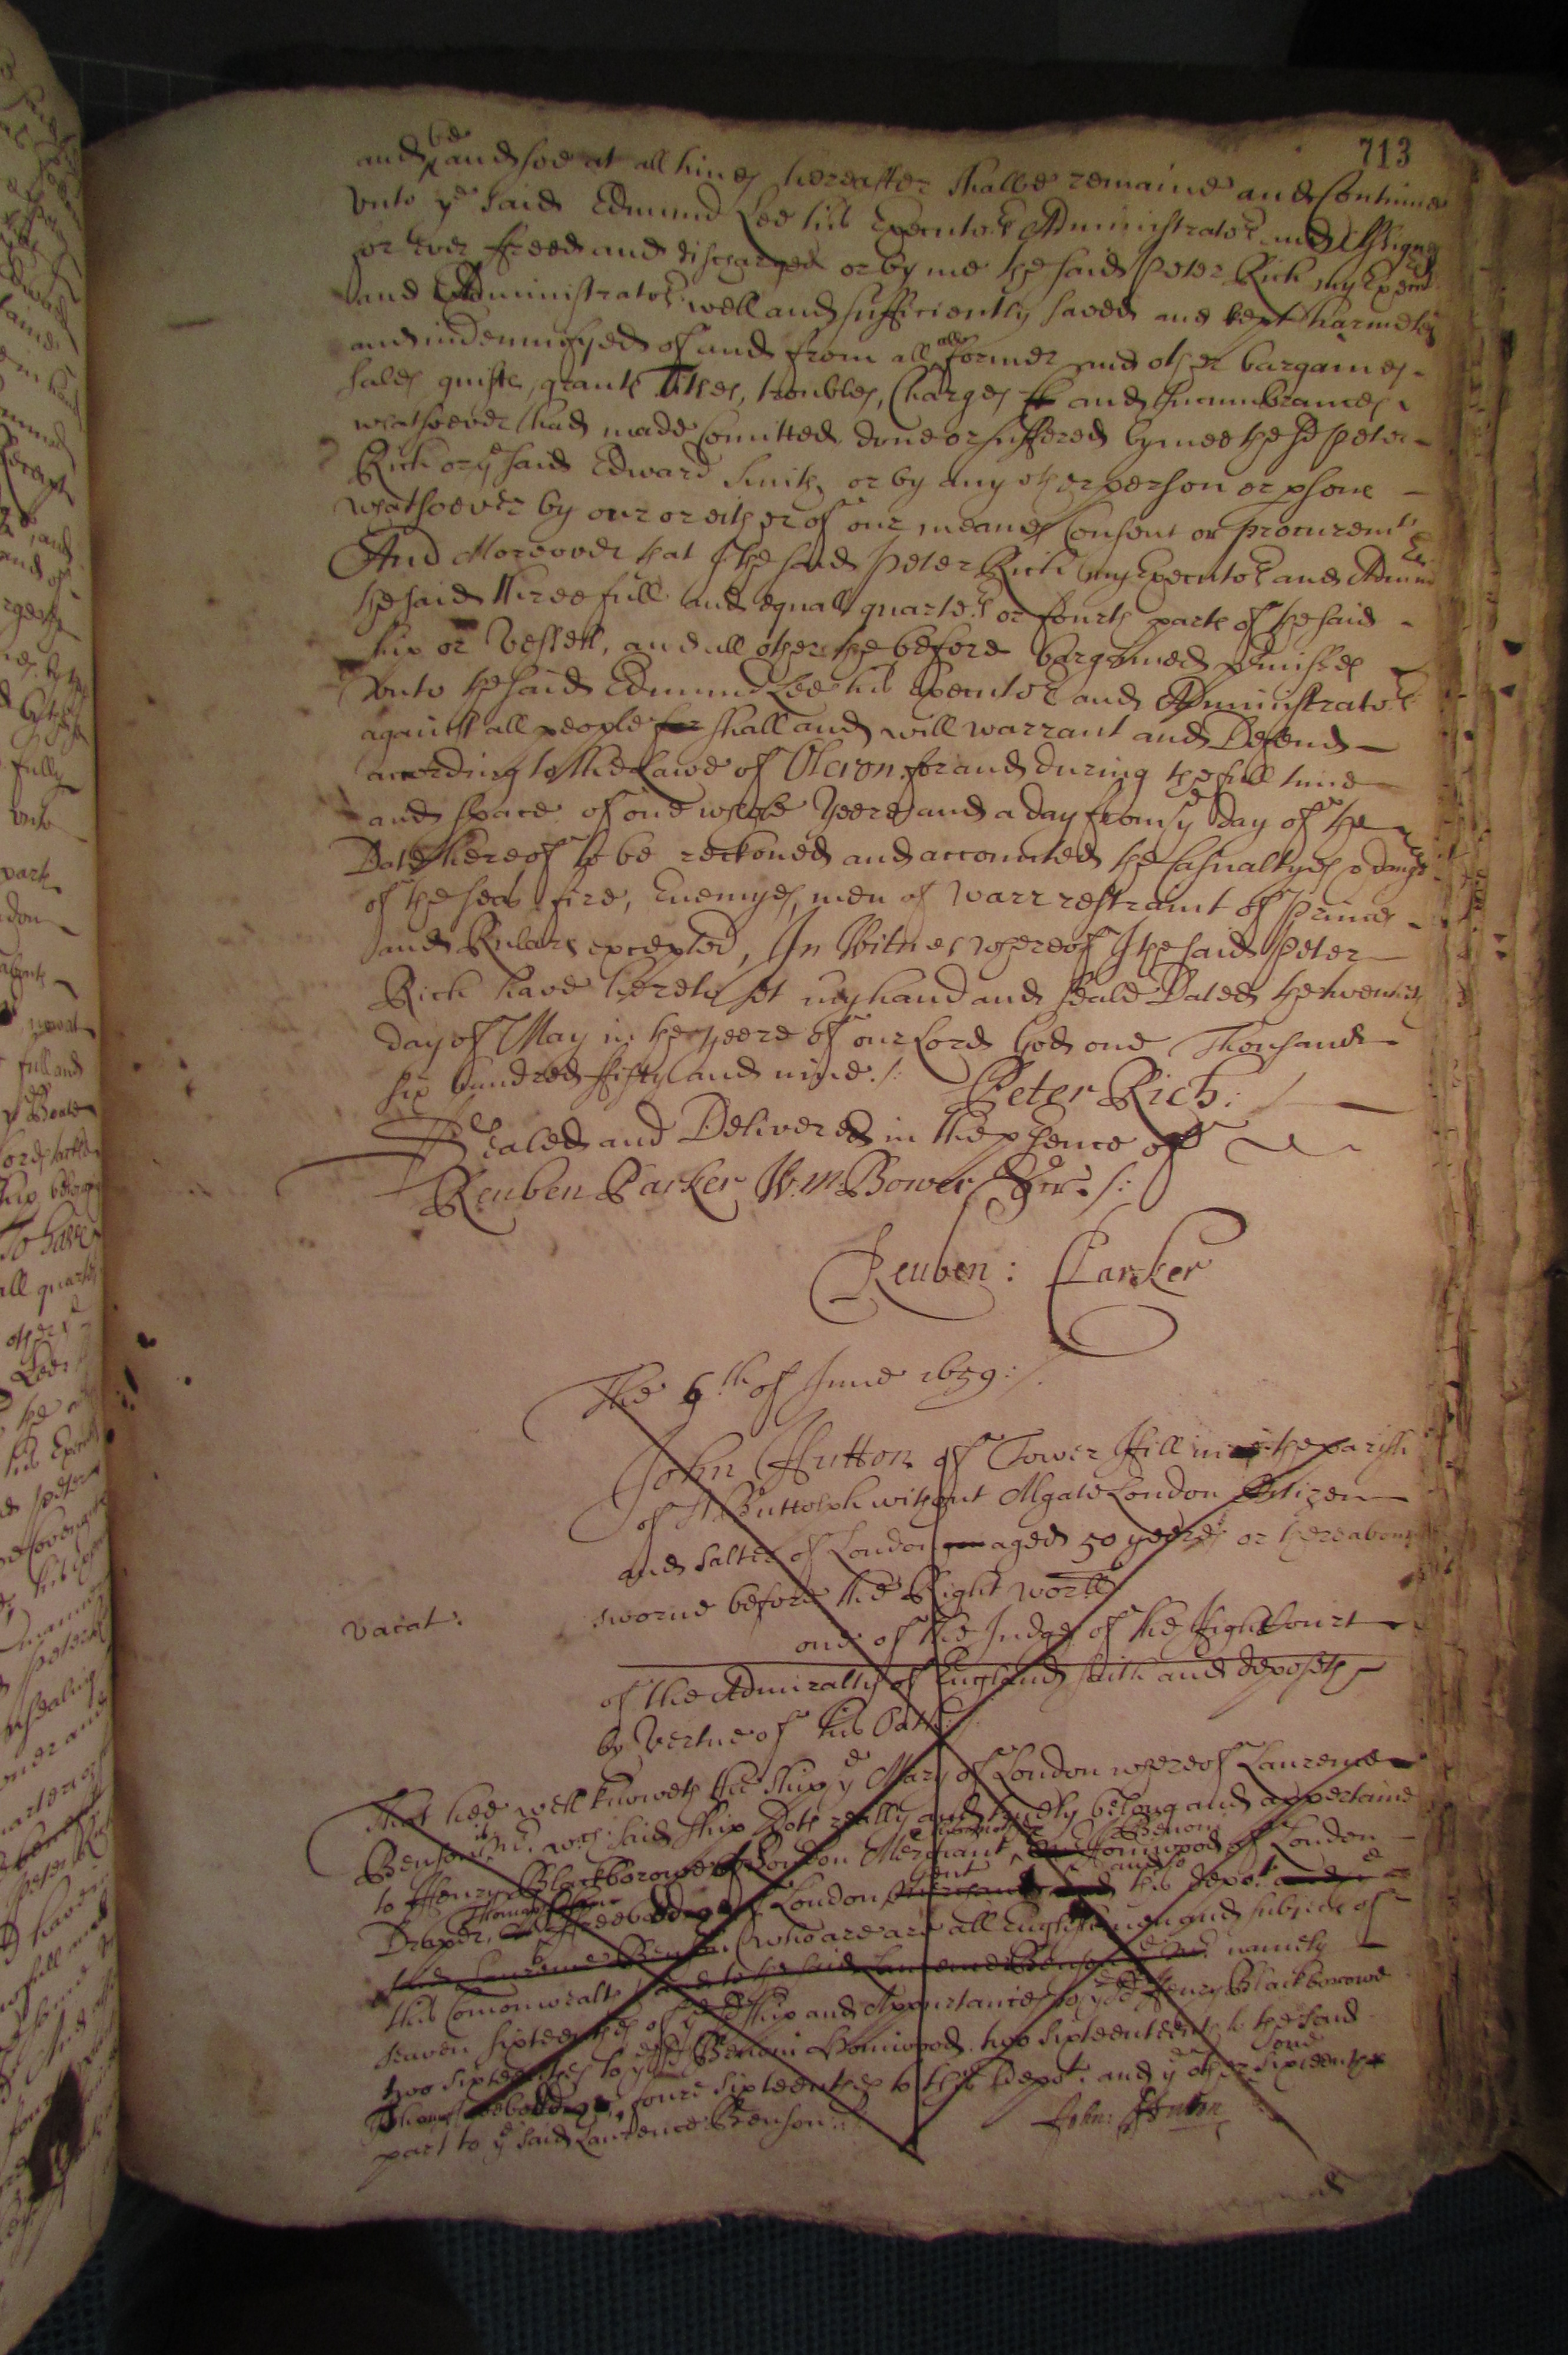 713
and be and soe at all times hereafter shalbe remaine and Continue
vnto ye said Edmund Lee his Executors Administrators and Assignes
for ever freed and discharged or by me the said Peter Rich my Execrs
and Administrators well and sufficiently saved and kept harmeles
and indemnifyed of and from all and former and other bargaines
sales guifts, grants titles, troubles, Charges and Incumbrances
whatsoever had made Comitted done or suffered by mee the sd Peter
Rich or ye said Edward Smith, or by any other person or psons
whatsoever by our or either of our meanes Consent or procuremt
And Moreover that I the said Peter Rich my Executors and Admrs
the said three full and equall quarters or fourth parts of the said
ship or Vessell, and all other the before bargained pmisses
vnto the said Edmund Lee his Executors and Administrators
against all people for shall and will warrant and Defend
according to the Lawe of Oleron for and during the full time
and space of one whole Yeere and a day from ye day of the
Date hereof to be reckoned and accounted the Casualtyes & dangers
of the seas fire, Enemyes, men of warr restraint of Princes
and Rulers excepted, In Witnes whereof I the said Peter
Rich have hereto set my hand and seale Dated the twentith
day of May in the yeere of our Lord God one Thousand
six hundred fifty and nine ./:
Peter Rich:
Sealed and Delivered in the psence of
Reuben Parker Wm Bower Scr. /:
Reuben: Parker
The 6th of June 1659:/.
John Hutton of Tower Hill in the parish
of St Buttolph without Algate London Citizen
and Salter of London aged 50 yeeres or thereabouts
sworne before the Right worll
vacat.
one of the Judges of the High Court
of the Admiralty of England saith and deposeth
by Vertue of his Oath:/
That hee well knoweth the ship ye Mary of London whereof Laurence
Benson is Mr. wch said ship Doth really and truely belong and appertaine
to Henry Blackborowe of London Merchant, Benoni Honiwood of London
Draper, Thomas of London gent and to this depot
the Laurence Benson (who are all Englishmen and subjects of
this Comonwealth) and to the said Laurence Benson ye sd Mr. namely
seaven sixteenthes of ye sd ship and Apurtances to ye sd Henry Blackborowe
two sixteenthes to ye sd Benoni Honiwood, two sixteenteenths to the said
Thomas foure sixteenthes to this Depot. and ye other one sixteenth
part to ye said Laurence Benson:/
John: Hutton